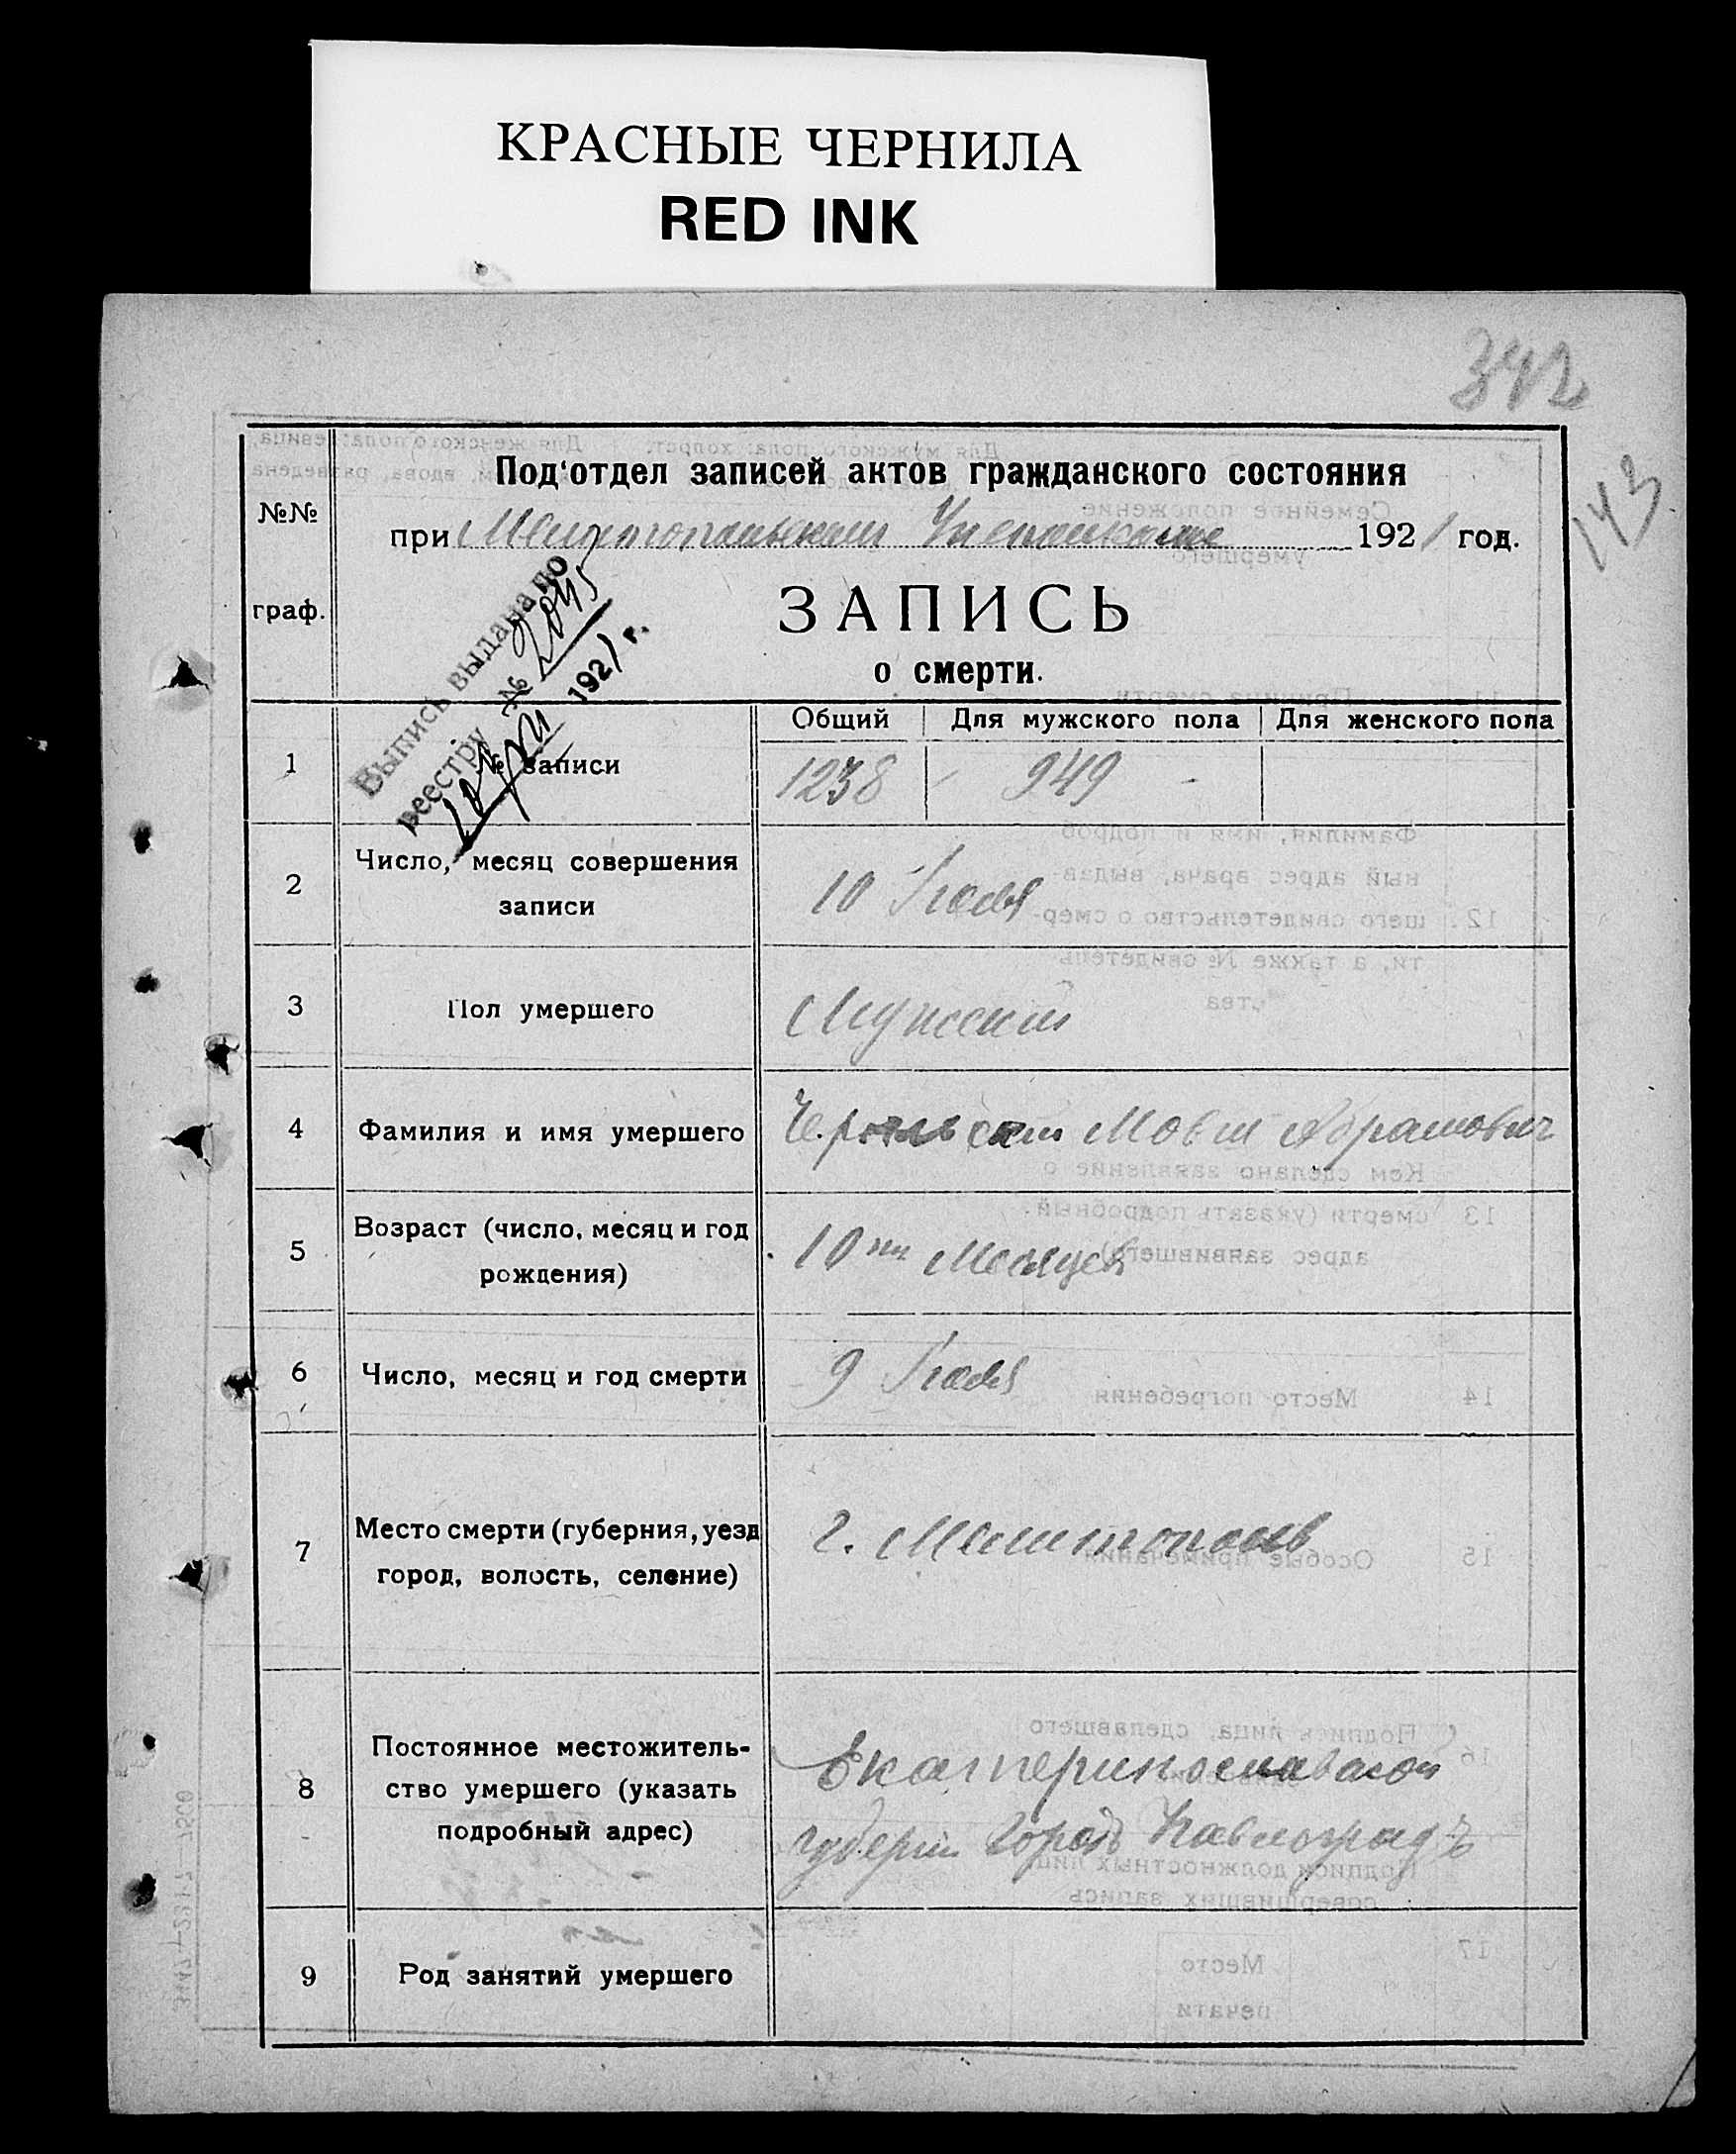 КРАСНЫЕ ЧЕРНИЛА
RED INK
342
143
№№
граф.
Под‘отдел записей актов гражданского состояния
при Мелитопольском 1921 год.
ЗАПИСЬ
о смерти.
Выпись выдана по
реестру № 2045
1921 г.
Общий Для мужского пола Для женского пола
1 № записи 1238 949
2 Число, месяц совершения
записи
10 Июля
3 Пол умершего Мужской
4 Фамилия и имя умершего Мовш Абрамович
5 Возраст (число, месяц и год
рождения)
10 ти Месяцев
6 Число, месяц и год смерти 9 Июля
7 Место смерти (губерния, уезд
город, волость, селение)
г. Мелитополь
8 Постоянное местожитель-
ство умершего (указать
подробный адрес)
Екатеринославской
губерни город Павлоградъ
9 Род занятий умершего